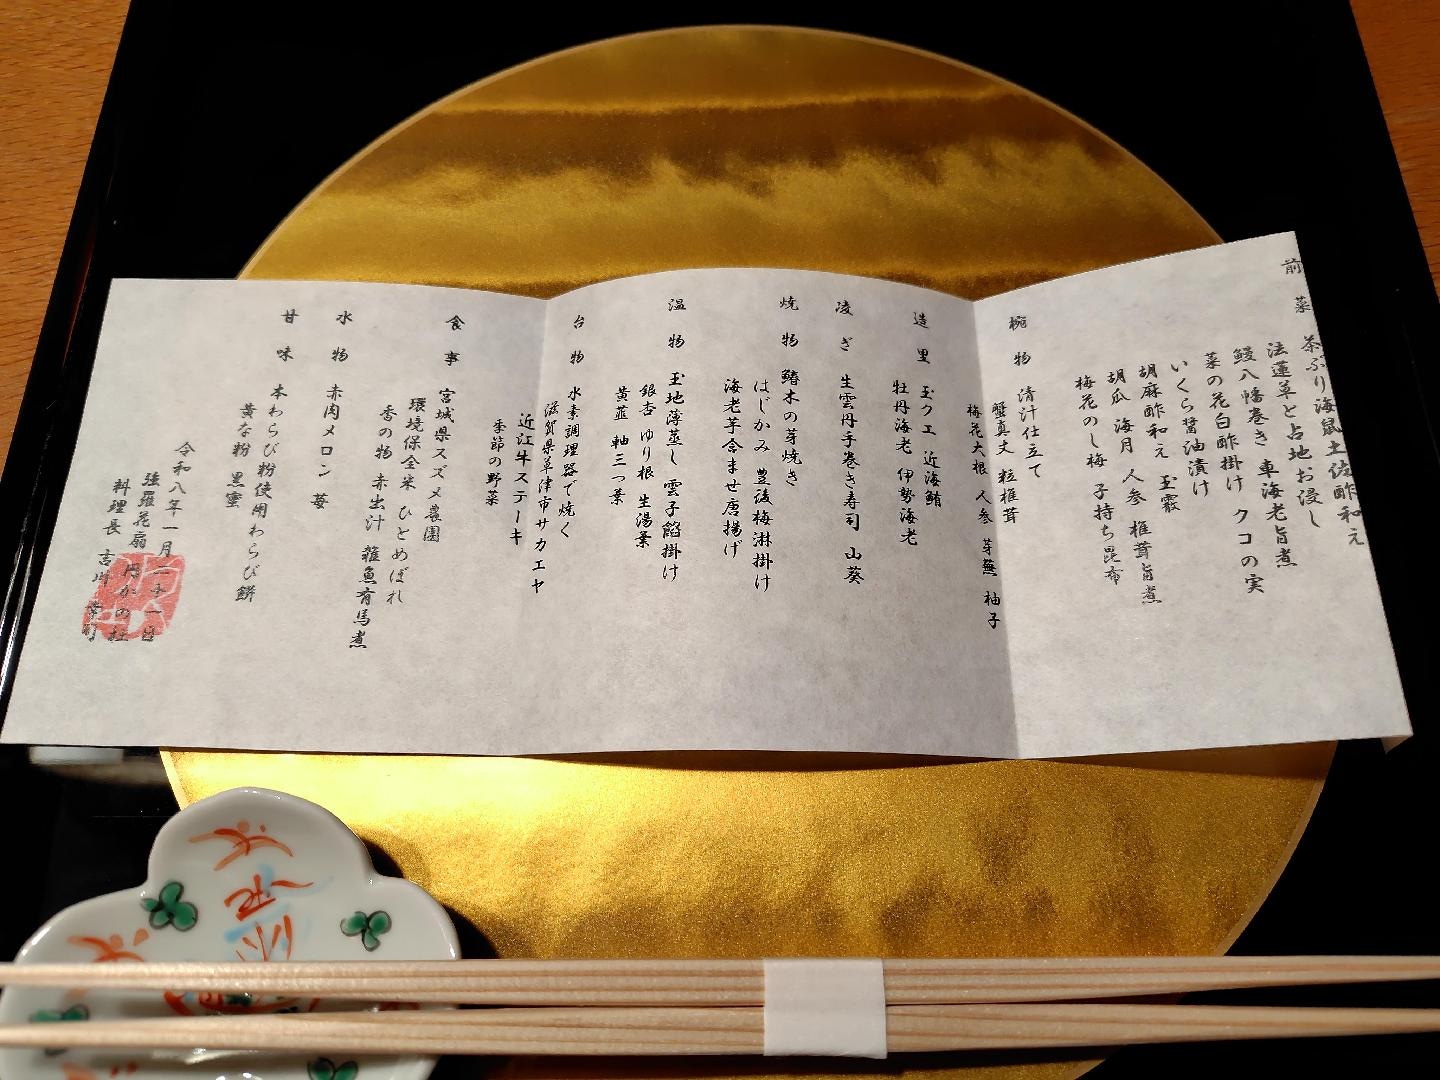 前菜
茶ぶり海鼠土佐酢和え
法蓮草と占地お浸し
鰻八幡巻き 車海老旨煮
菜の花白酢掛け クコの実
いくら醤油漬け
胡麻酢和え 玉霰
胡瓜 海月 人参 椎茸旨煮
梅花のし梅 子持ち昆布
椀物 清汁仕立て
蟹真丈 粒椎茸
梅花大根 人参 芽蕪 柚子
造里 玉クエ 近海鮪
牡丹海老 伊勢海老
凌ぎ 生雲丹手巻き寿司 山葵
焼物 鰆木の芽焼き
はじかみ 豊後梅淋掛け
海老芋含ませ唐揚げ
温物 玉地薄蒸し 雲子餡掛け
銀杏 ゆり根 生湯葉
黄韮 軸三つ葉
台物 水素調理器で焼く
滋賀県草津市サカエヤ
近江牛ステーキ
季節の野菜
食事 宮城県スズメ農園
環境保全米 ひとめぼれ
香の物 赤出汁 雑魚有馬煮
水物 赤肉メロン 苺
甘味 本わらび粉使用わらび餅
黄な粉 黒蜜
令和八年一月二十一日
強羅花扇 円かの杜
料理長